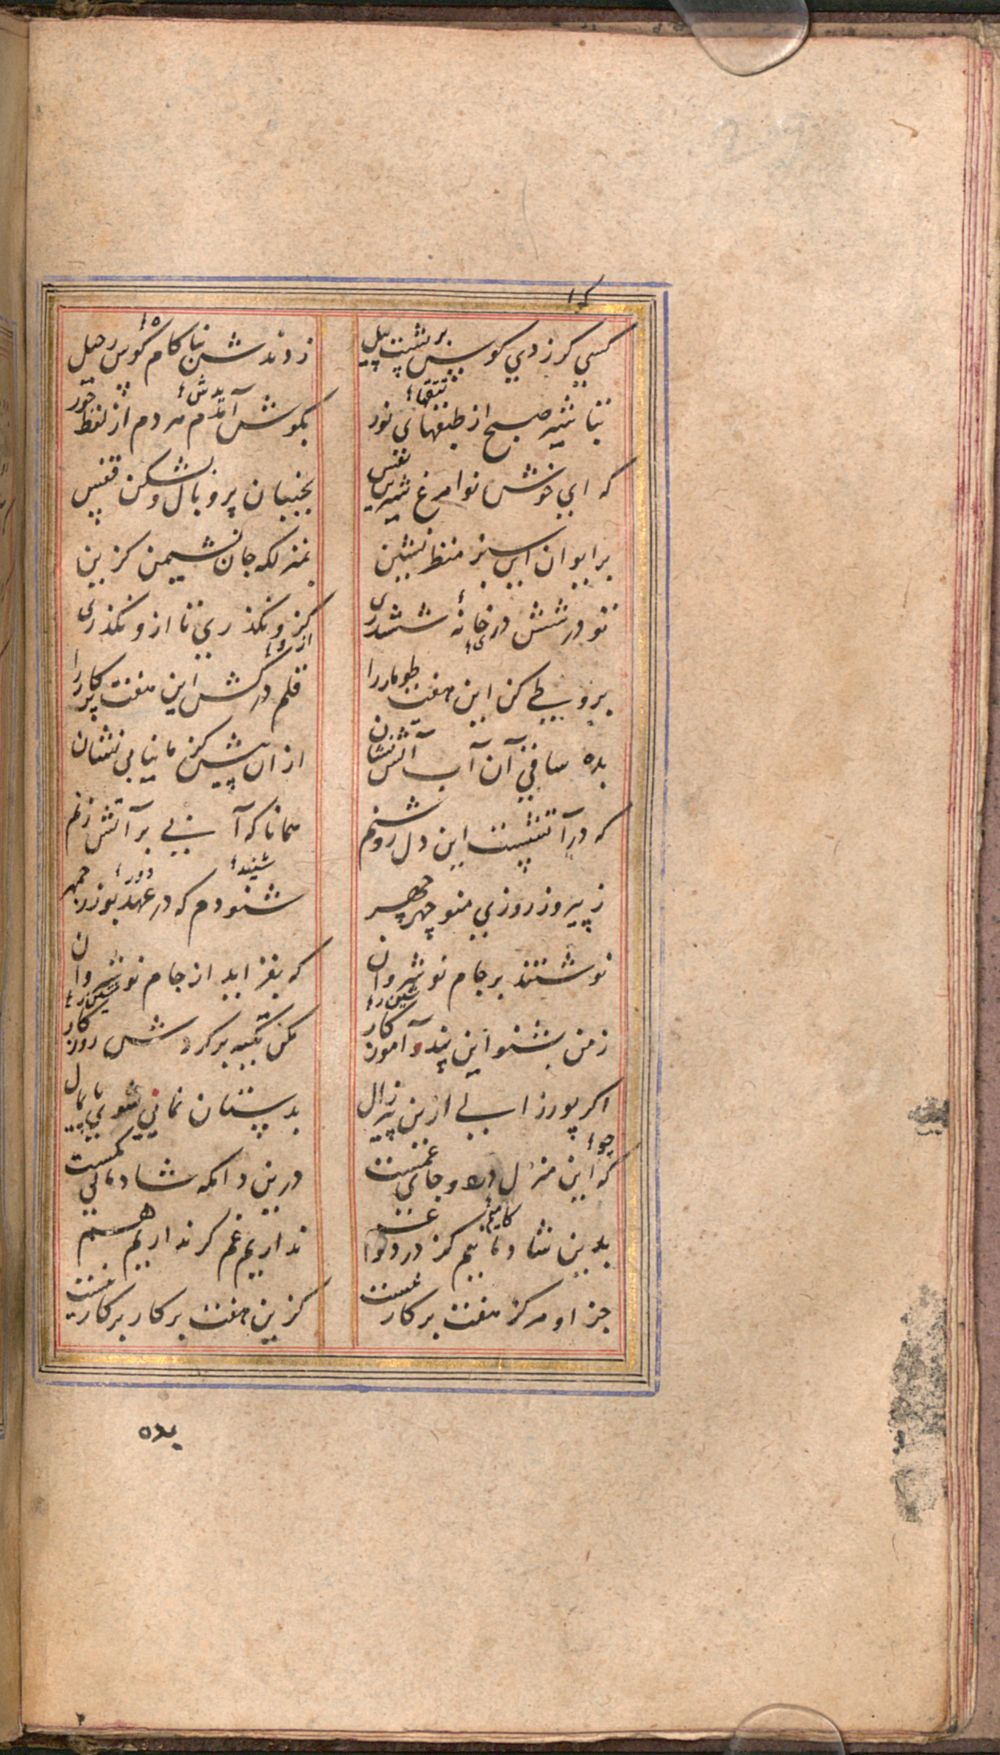 کسی کر زدی کوس بر پشت پیل
زدندش بناکام کوس رحیل
تباشیر صبح از طبقهای نور
بکوش آمدم مردم از لفظ حور
که ای خوش نوا مرغ شیرین نفس
بجنبان پر و بال و بشکن قفس
بر ایوان این سبز منظر نشین
بمنزلکه جان نشیمن کزین
تو در شش در خانه ششدری
کزو نکذری تا ازو نکذری
برو طی کن این هفت طومار را
قلم درکش این هفت پرکار را
بده ساقی آن آب آتش نشان
از ان پیش کز ما نیابی نشان
که در آتشست این دل روشنم
همانا که آبی بر آتش زنم
ز پیروز روزی منوچهر چهر
شنودم که در عهد بوزرجمهر
نوشتند بر جام نوشروان
که بفزاید از جام نوشین روان
ز من بشنو این پند و آموزکار
مکن تکیه بر کردش روزکار
اکر پور زابلی ازین پیر زال
بدستان نمانی شوی پایمال
که این منزل درد و جای غمست
درین دامکه شادمانی کمست
بدین شادمانیم کز درد و غم
نداریم غم کر نداریم هم
جز او مرکز هفت پرکار نیست
کزین هفت پرکار پرکار نیست
بده